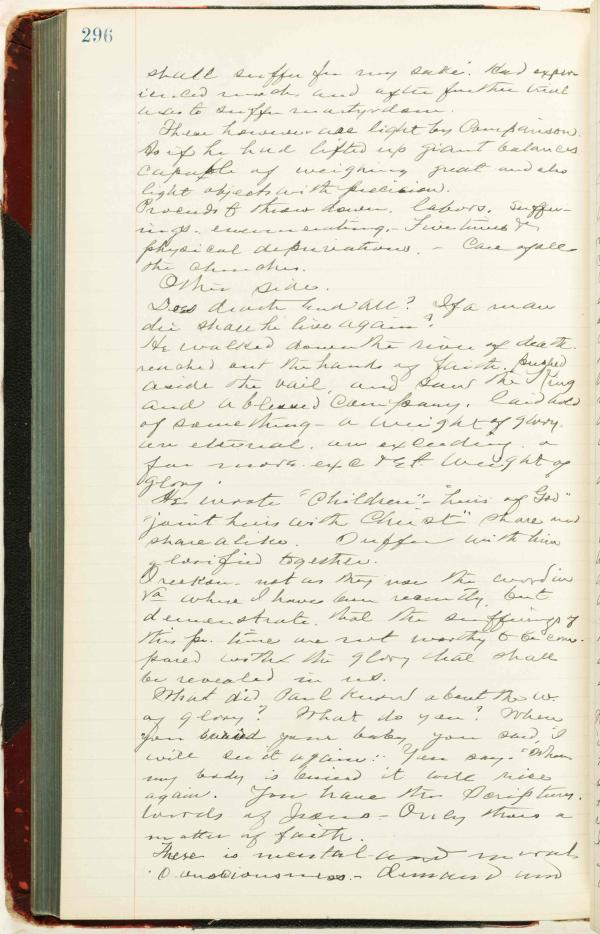 296
shall suffer for my sake. Had exper-
ienced much and after further trial
was to suffer martyrdom.
These however are light by Comparison.
As if he had lifted up giant balances
capable of weighing great and also
light objects with precision.
Proceeds to throw down. labors. suffer-
ings. enumerating. - Five times &c
physical deprivations. - Care of all
the churches.
Other side.
Does death End All? If a man
die shall he live again?
He walked down the river of death.
reached out the hands of faith. pushed
aside the vail, and saw the King
and a blessed Company. laid hold
of something - a weight of glory.
an eternal. an exceeding. a
far more exc & Et. weight of
glory.
He wrote "Children" - "heirs of God"
"joint heirs with Christ" share and
share alike. Suffer with him
glorified together.
I reckon. not as they use the word in
Va where I have been recently, but
demonstrate. that the sufferings of
this pr. time are not worthy to be com-
pared with the glory that shall
be revealed in us.
What did Paul know about the w.
of glory? What do you? When
you buried your baby you said, "I
will see it again". You say - "When
my body is buried it will rise
again. You have the Scriptures.
Words of Jesus - Only this a
matter of faith.
There is mental and moral
Consciousness. - demand and